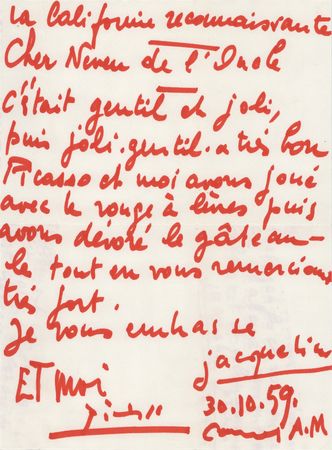 La Californie reconnaissante
Cher Neveu de l'Oncle
c'était gentil et joli,
puis joli.gentil.a très bon
Picasso et moi avons joué
avec le rouge à lèvres puis
avons dévoré le gâteau-
le tout en vous remerciant
très fort.
Je vous embrasse
jacqueline
ET MOI
Picasso
30.10.59.
Cannes A.M